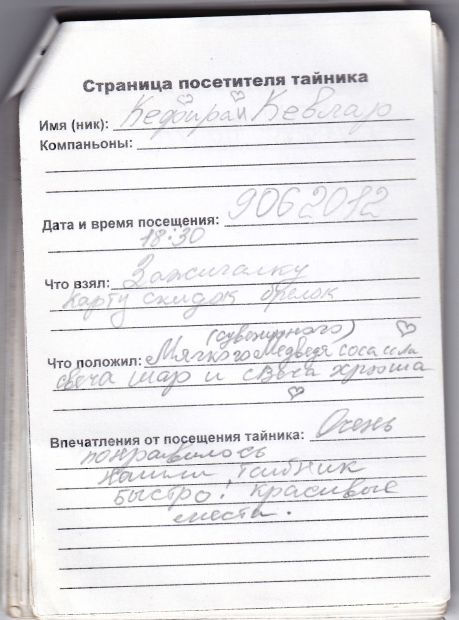 Страница посетителя тайника
Имя (ник): Кедбирай Кевлар
Компаньоны:
Дата и время посещения: 9062012
18:30
Что взял: Зажигалку
Карту скидок брелок
(сувенирного)
Что положил: Мягкого Медведя
свеча шар и свеча хрюша
Впечатления от посещения тайника: Очень
понравилось
нашли тайник
быстро! красивые
места.